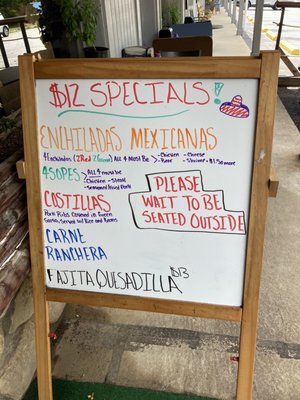 $12 SPECIALS!
ENCHILADAS MEXICANAS
4 Enchiladas (2 Red 2 Green) All 4 Must Be
• Chicken • Cheese
• Beef • Shrimp $1.50 more
4 SOPES
All 4 must be
• Chicken • Steak
• Seasoned
COSTILLAS
Pork Ribs Covered in Green
Sauce, Served w/ Rice and Beans
CARNE
RANCHERA
FAJITA QUESADILLA $13
PLEASE
WAIT TO BE
SEATED OUTSIDE